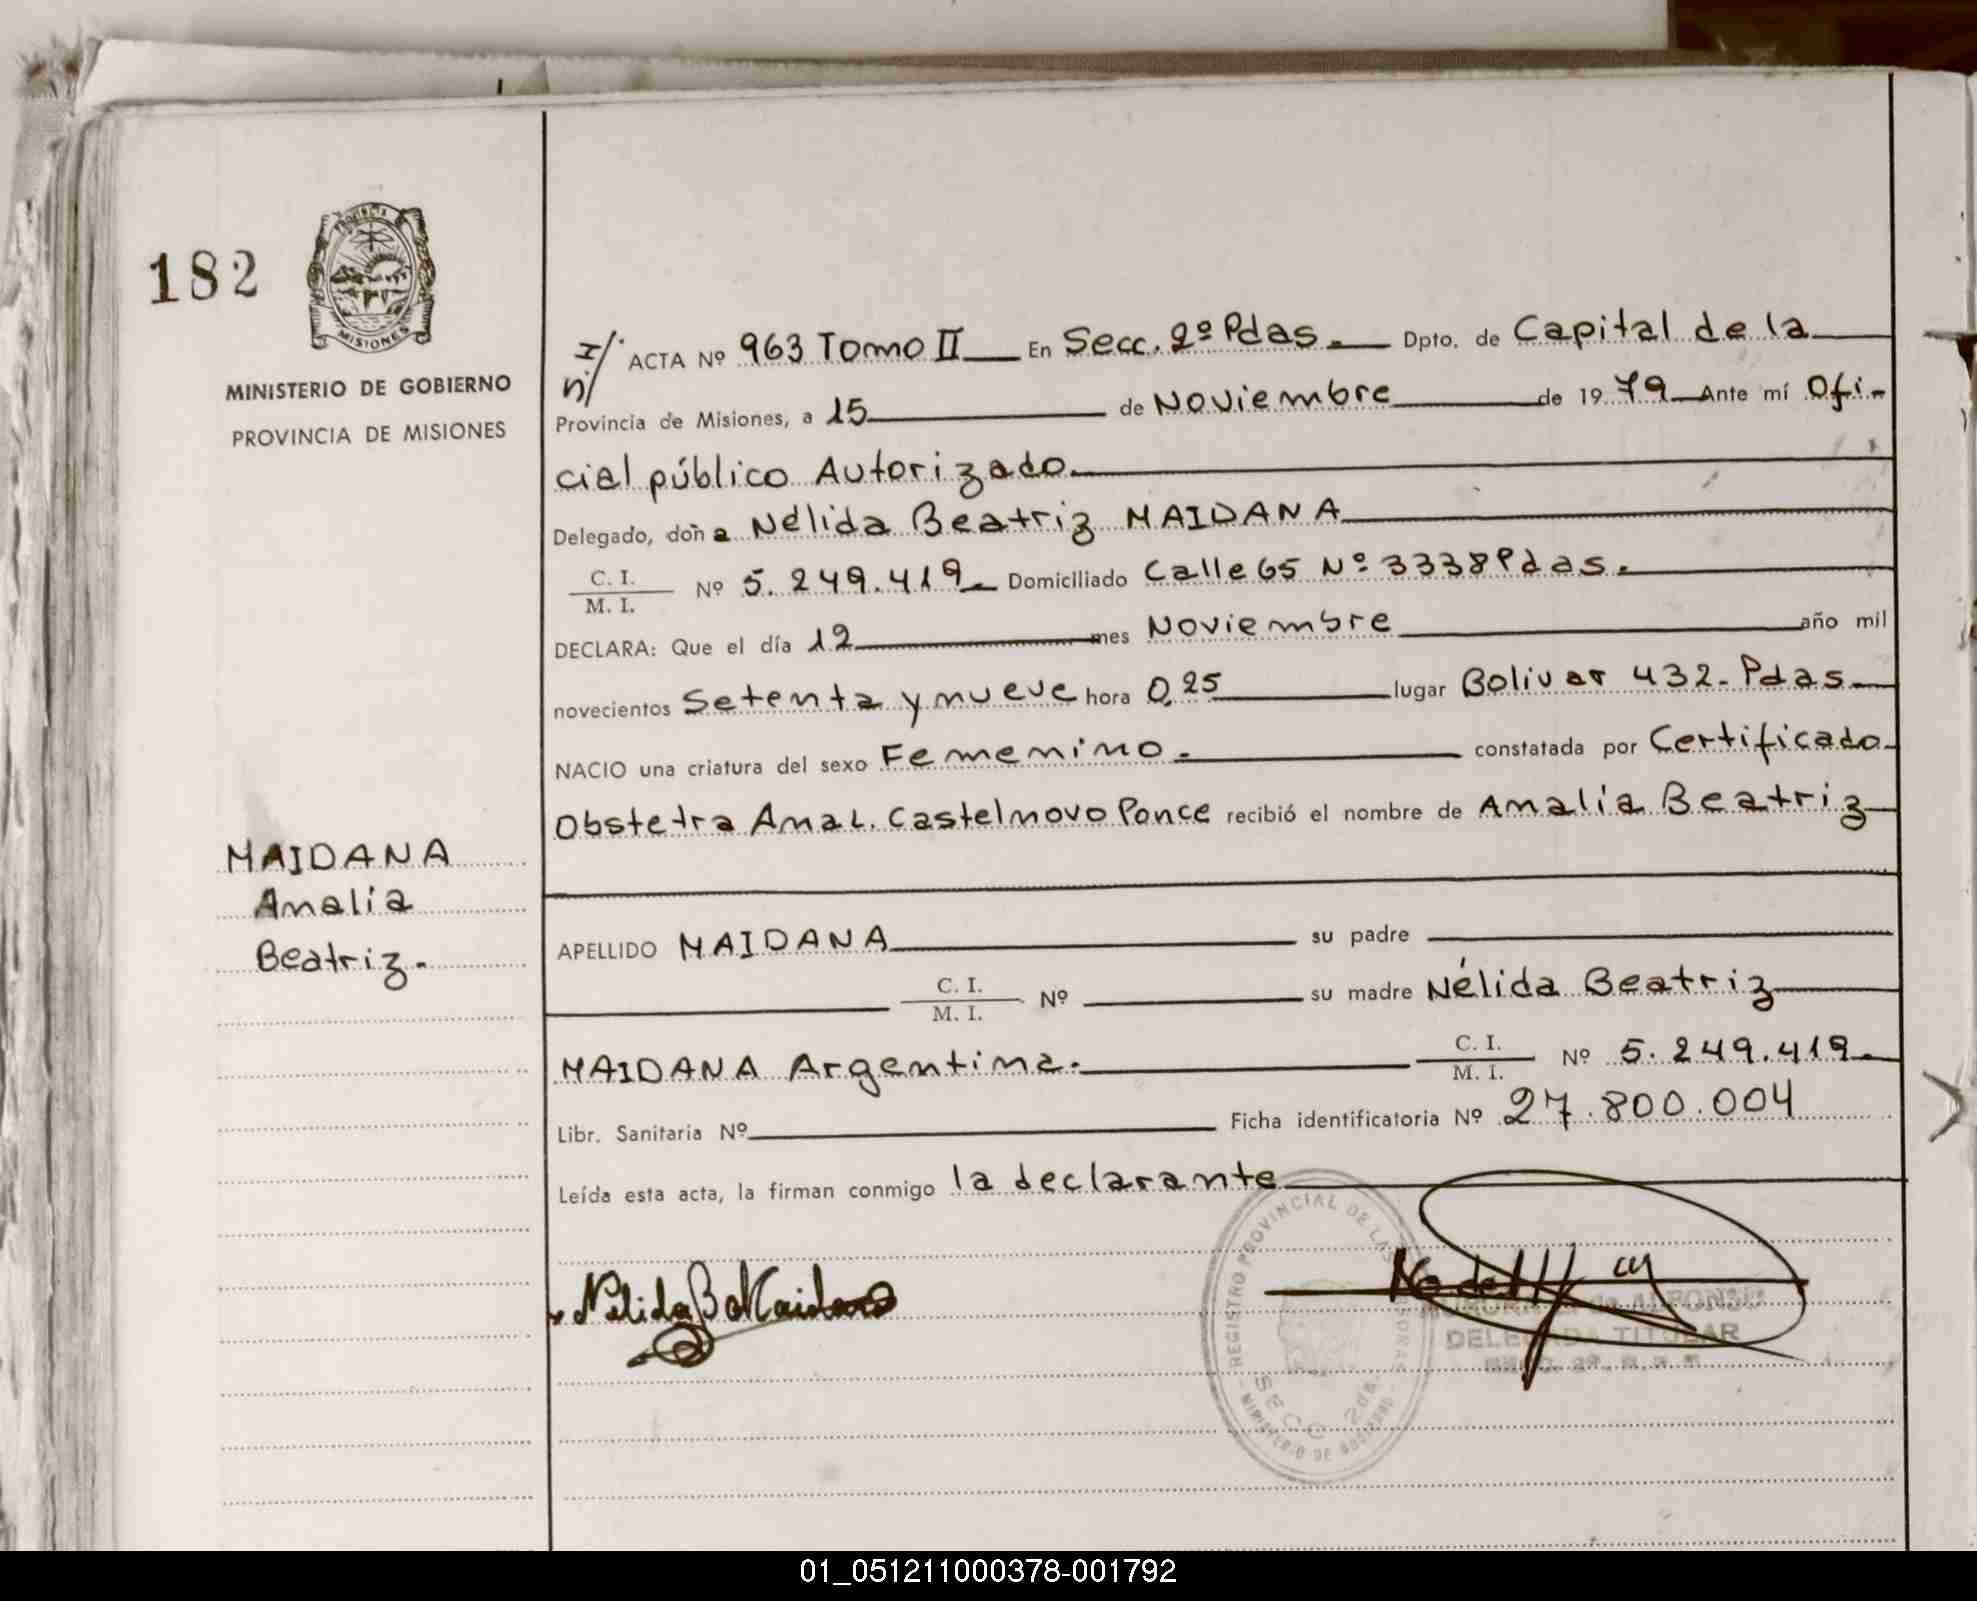 182
MISIONES
MINISTERIO DE GOBIERNO
PROVINCIA DE MISIONES
MAIDANA
Amalia
Beatriz.-
I/.
n/
ACTA Nº 963 Tomo II En Secc. 2º Pdas. Dpto. de Capital de la
Provincia de Misiones, a 15 de Noviembre de 1979 Ante mí Ofi-
cial público Autorizado.
Delegado, doña Nélida Beatriz MAIDANA
C. I.
M. I. Nº 5.249.419 Domiciliado Calle 65 Nº 3338 Pdas.
DECLARA: Que el día 12 mes Noviembre año mil
novecientos Setenta y nueve hora 0,25 lugar Bolivar 432- Pdas
NACIO una criatura del sexo Femenino.- constatada por Certificado
Obstetra Ana L. Castelnovo Ponce recibió el nombre de Amalia Beatriz
APELLIDO MAIDANA su padre
C. I.
M. I. Nº su madre Nélida Beatriz
MAIDANA Argentina. C. I.
M. I. Nº 5.249.419
Libr. Sanitaria Nº Ficha identificatoria Nº 27.800.004
Leída esta acta, la firman conmigo la declarante
Nelida B Maidana
REGISTRO PROVINCIAL DE LAS PERSONAS
SECC 2da.
MINISTERIO DE GOBIERNO
de ALFONSO
DELEGADA TITULAR
01_051211000378-001792